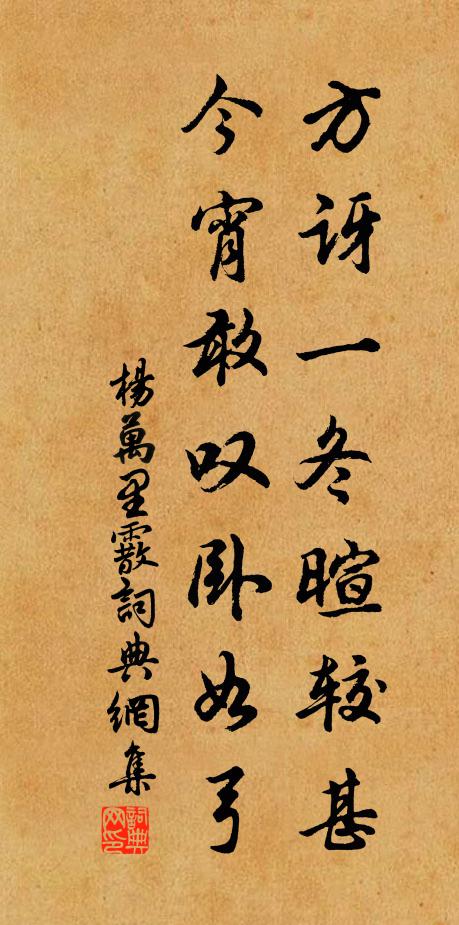 方讶一冬暄较甚
今宵敢叹卧如弓
楊萬里霰詞典網集
詞典网印